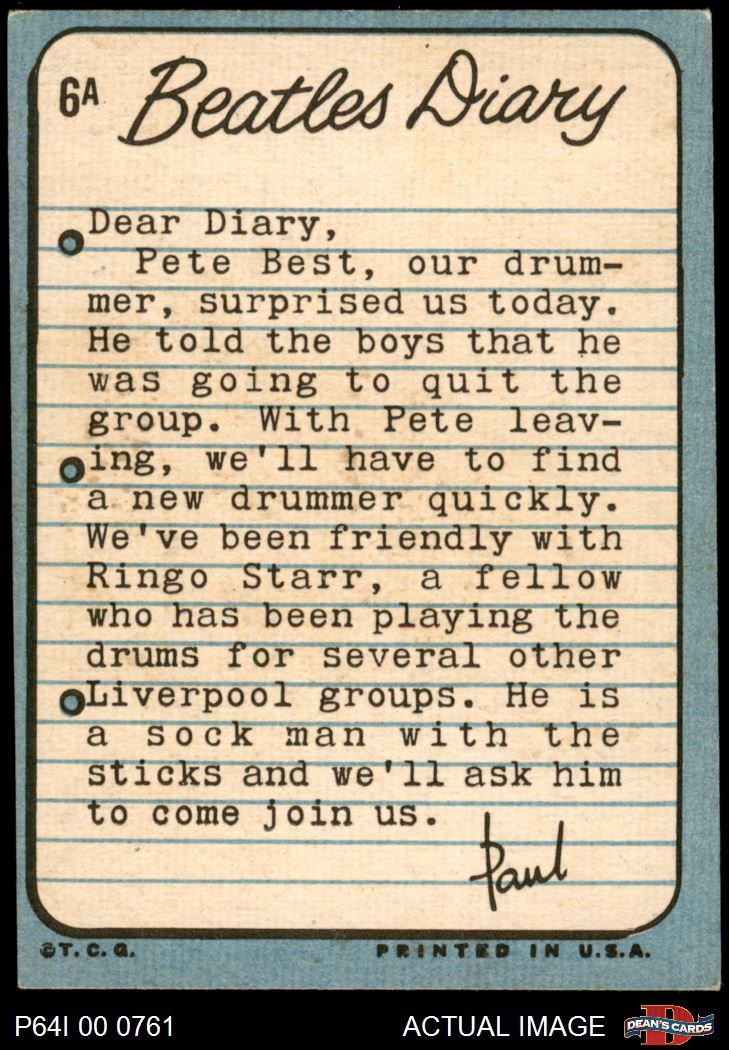 6A Beatles Diary
Dear Diary,
Pete Best, our drum-
mer, surprised us today.
He told the boys that he
was going to quit the
group. With Pete leav-
ing, we'll have to find
a new drummer quickly.
We've been friendly with
Ringo Starr, a fellow
who has been playing the
drums for several other
Liverpool groups. He is
a sock man with the
sticks and we'll ask him
to come join us.
Paul
©T.C.G. PRINTED IN U.S.A.
P64I 00 0761 ACTUAL IMAGE D DEAN'S CARDS